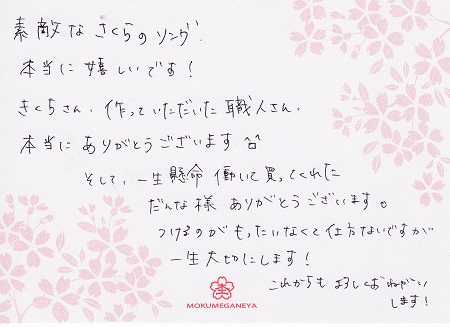 素敵なさくらのリング!
本当に嬉しいです!
きくちさん、作っていただいた職人さん、
本当にありがとうございます^^
そして、一生懸命働いて買ってくれた
だんな様ありがとうございます。
つけるのがもったいなくて仕方ないですが
一生大切にします!
これからもよろしくおねがい
します!
MOKUMEGANEYA